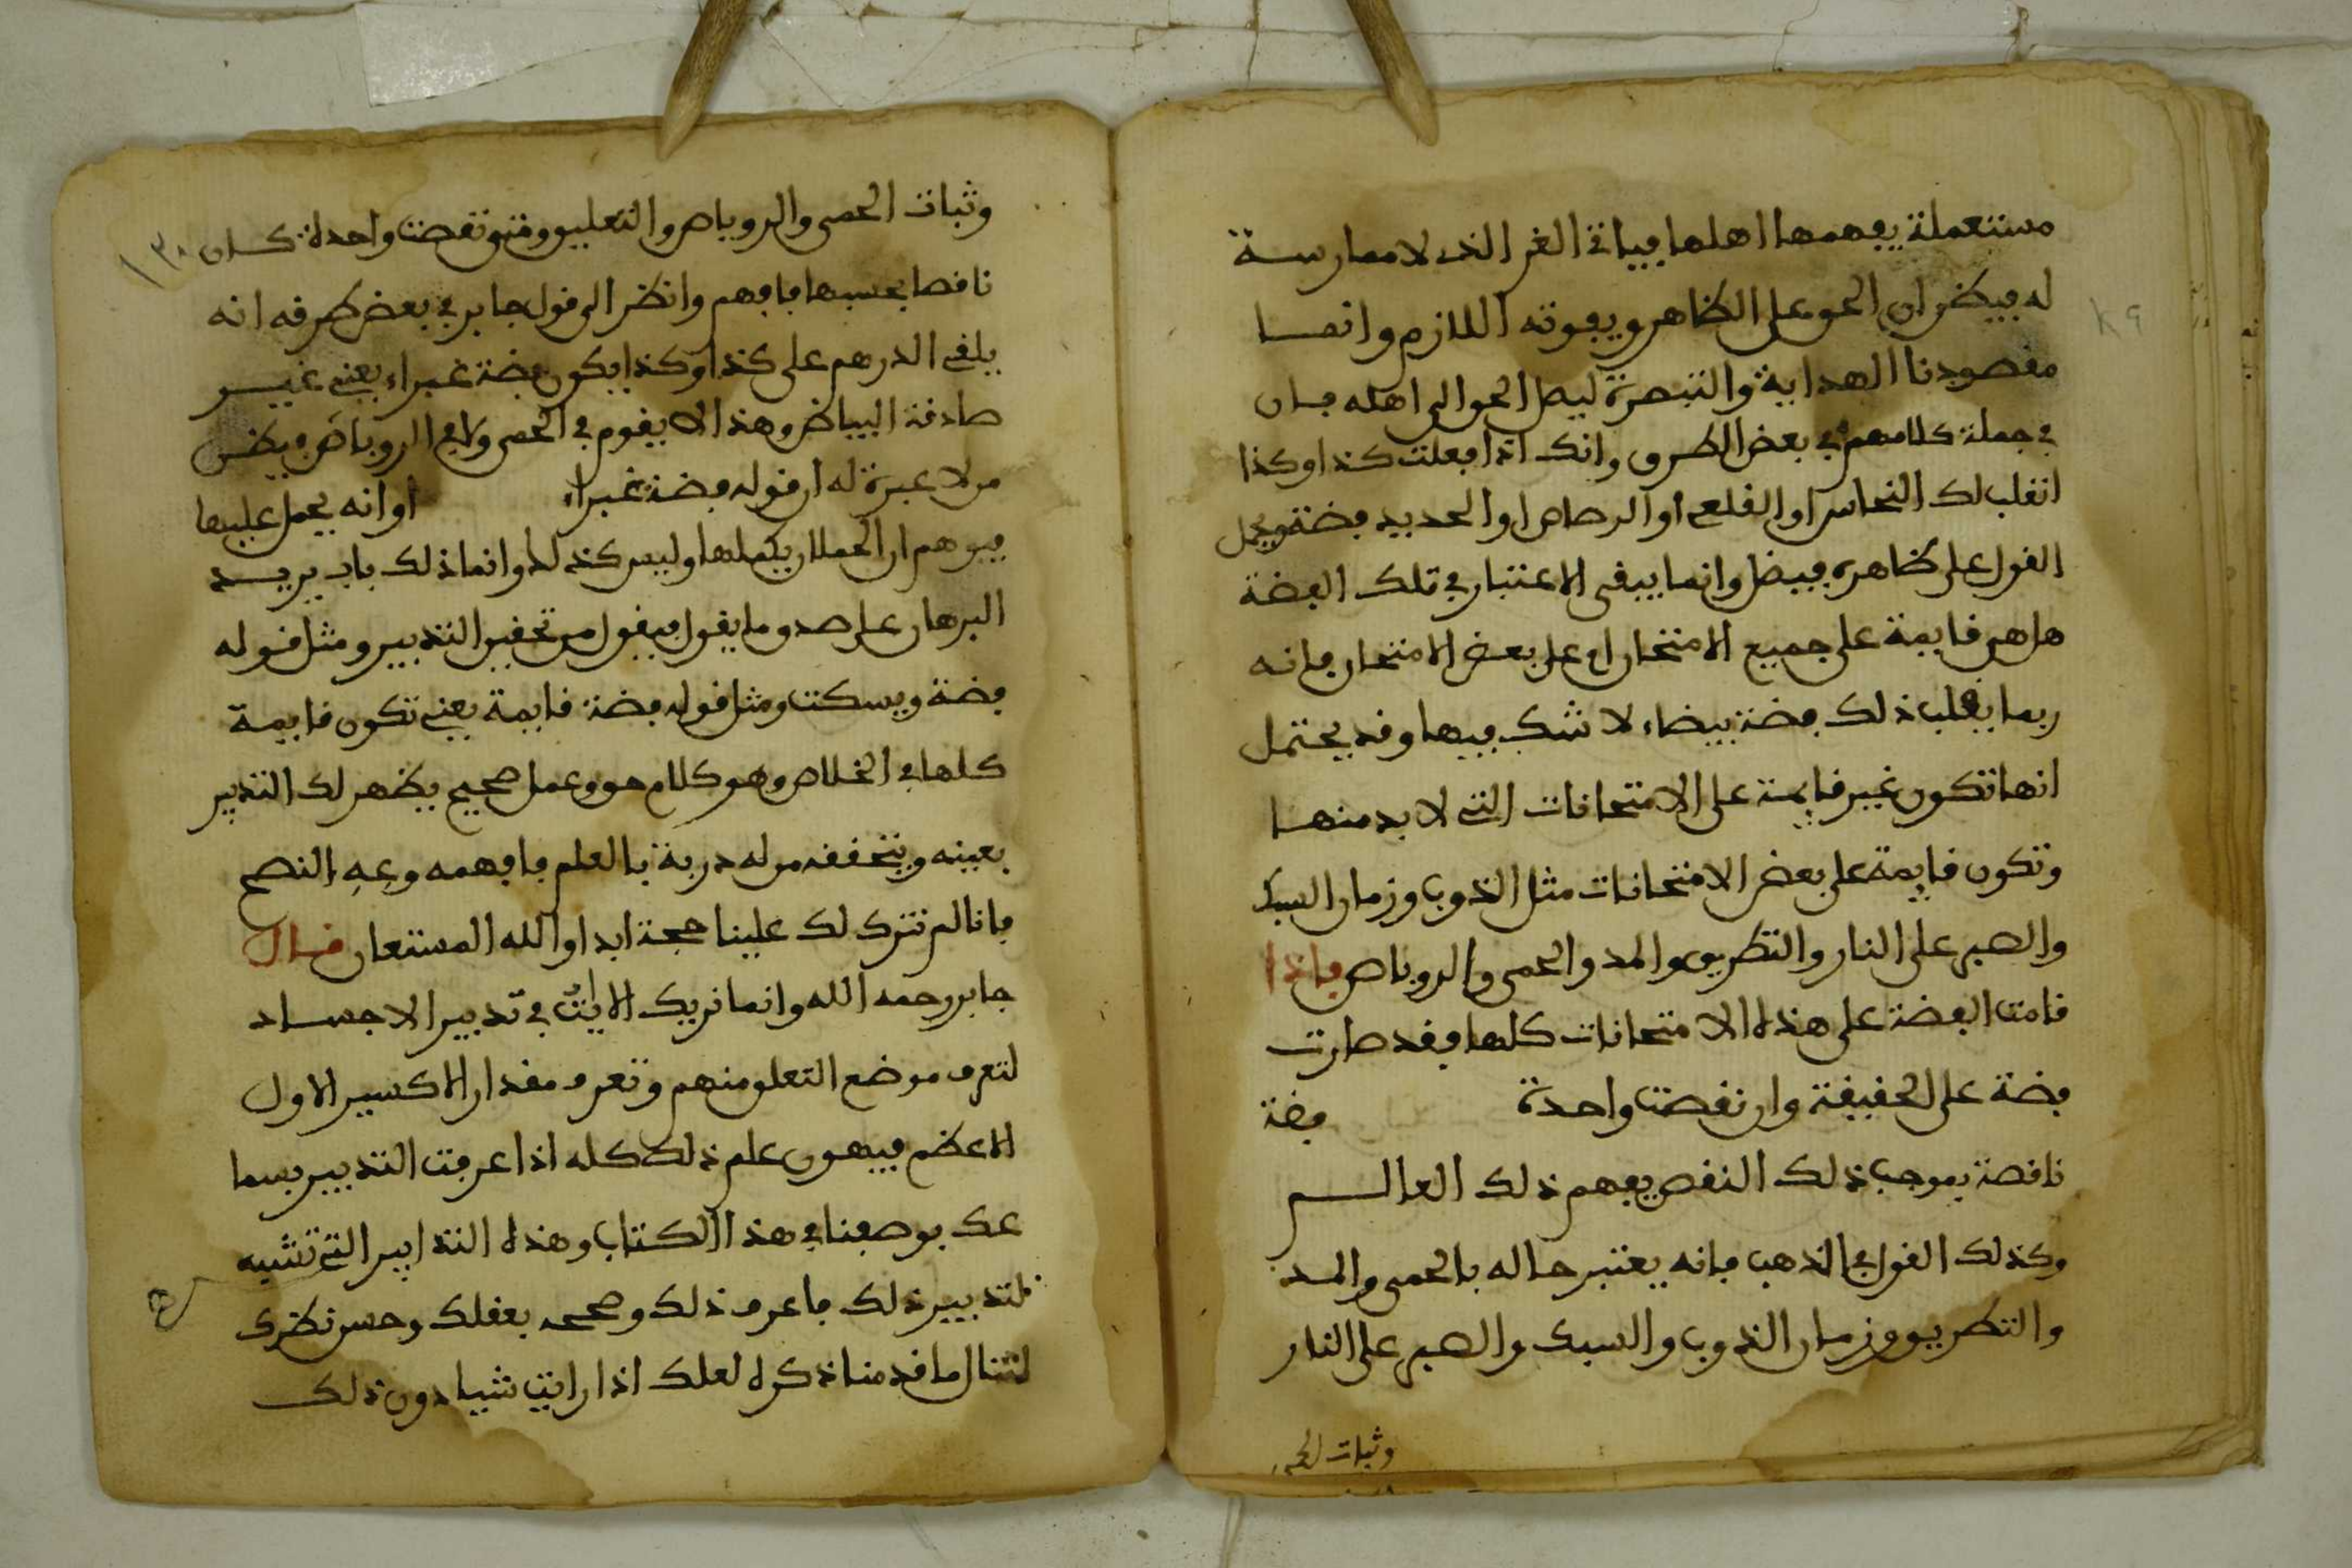 مستعملة يفهمها اهلها فياتي الغر الذي لا ممارسة
له فيظن ان الحق على الظاهر ويفوته اللازم وانما
مقصودنا الهداية والتبصرة ليصل الحق الى اهله فان
في جملة كلامهم في بعض الطرق وانك اذا فعلت كذا وكذا
انقلب لك النحاس او القلعي او الرصاص او الحديد فضة ويحمل
القول على ظاهره فيضل وانما يبقى الاعتبار في تلك الفضة
هل هي قايمة على جميع الامتحان او على بعض الامتحان فانه
ربما يقلب ذلك فضة بيضاء لا شك فيها وقد يحتمل
انها تكون غير قايمة على الامتحانات التي لا بد منها
وتكون قايمة على بعض الامتحانات مثل الذوب وزمان السبك
والصبر على النار والتطريق والمد والحمى والروباص فاذا
قامت الفضة على هذه الامتحانات كلها فقد صارت
فضة على الحقيقة وان نقصت واحدة فضة
ناقصة بموجب ذلك النقص يفهم ذلك العالم
وكذلك القول في الذهب فانه يعتبر حاله بالحمى والمد
والتطريق وزمان الذوب والسبك والصبر على النار
وثبات الحمى
٨٩
وثبات الحمى والروباص والتعليق ومتى نقصت واحدة كان
١٣٠
ناقصا بحسبها فافهم وانظر الى قول جابر في بعض طرقه انه
يلقى الدرهم على كذا وكذا يكون فضة غبراء يعني غير
صادقة البياض وهذا لا يقوم في الحمى ولا في الروباص فيظن
من لا عبرة له ان قوله فضة غبراء او انه يحمل عليها
فيوهم ان الحملان يكملها وليس كذلك وانما ذلك باب يريد
البرهان على صدق ما يقول فيقول من تحقيق التدبير ومثل قوله
فضة ويسكت ومثل قوله فضة قايمة يعني تكون قايمة
كلها في الخلاص وهو كلام حق وعمل صحيح يظهر لك التدبير
بعينه ويتحققه من له دربة بالعلم فافهمه وعه النصح
فانا لم نترك لك علينا حجة ابدا والله المستعان قال
جابر رحمه الله وانما نريك الايات في تدبير الاجساد
لتعرف موضع التعلق منهم وتعرف مقدار الاكسير الاول
الاعظم فيهون علم ذلك كله اذا عرفت التدبير بسما
عك بوصفنا في هذا الكتاب وهذه التدابير التي تشبه
لتدبير ذلك فاعرف ذلك وصححه بعقلك وحسن نظرك
لتنال ما قدمنا ذكره لعلك اذا رايت شيا دون ذلك